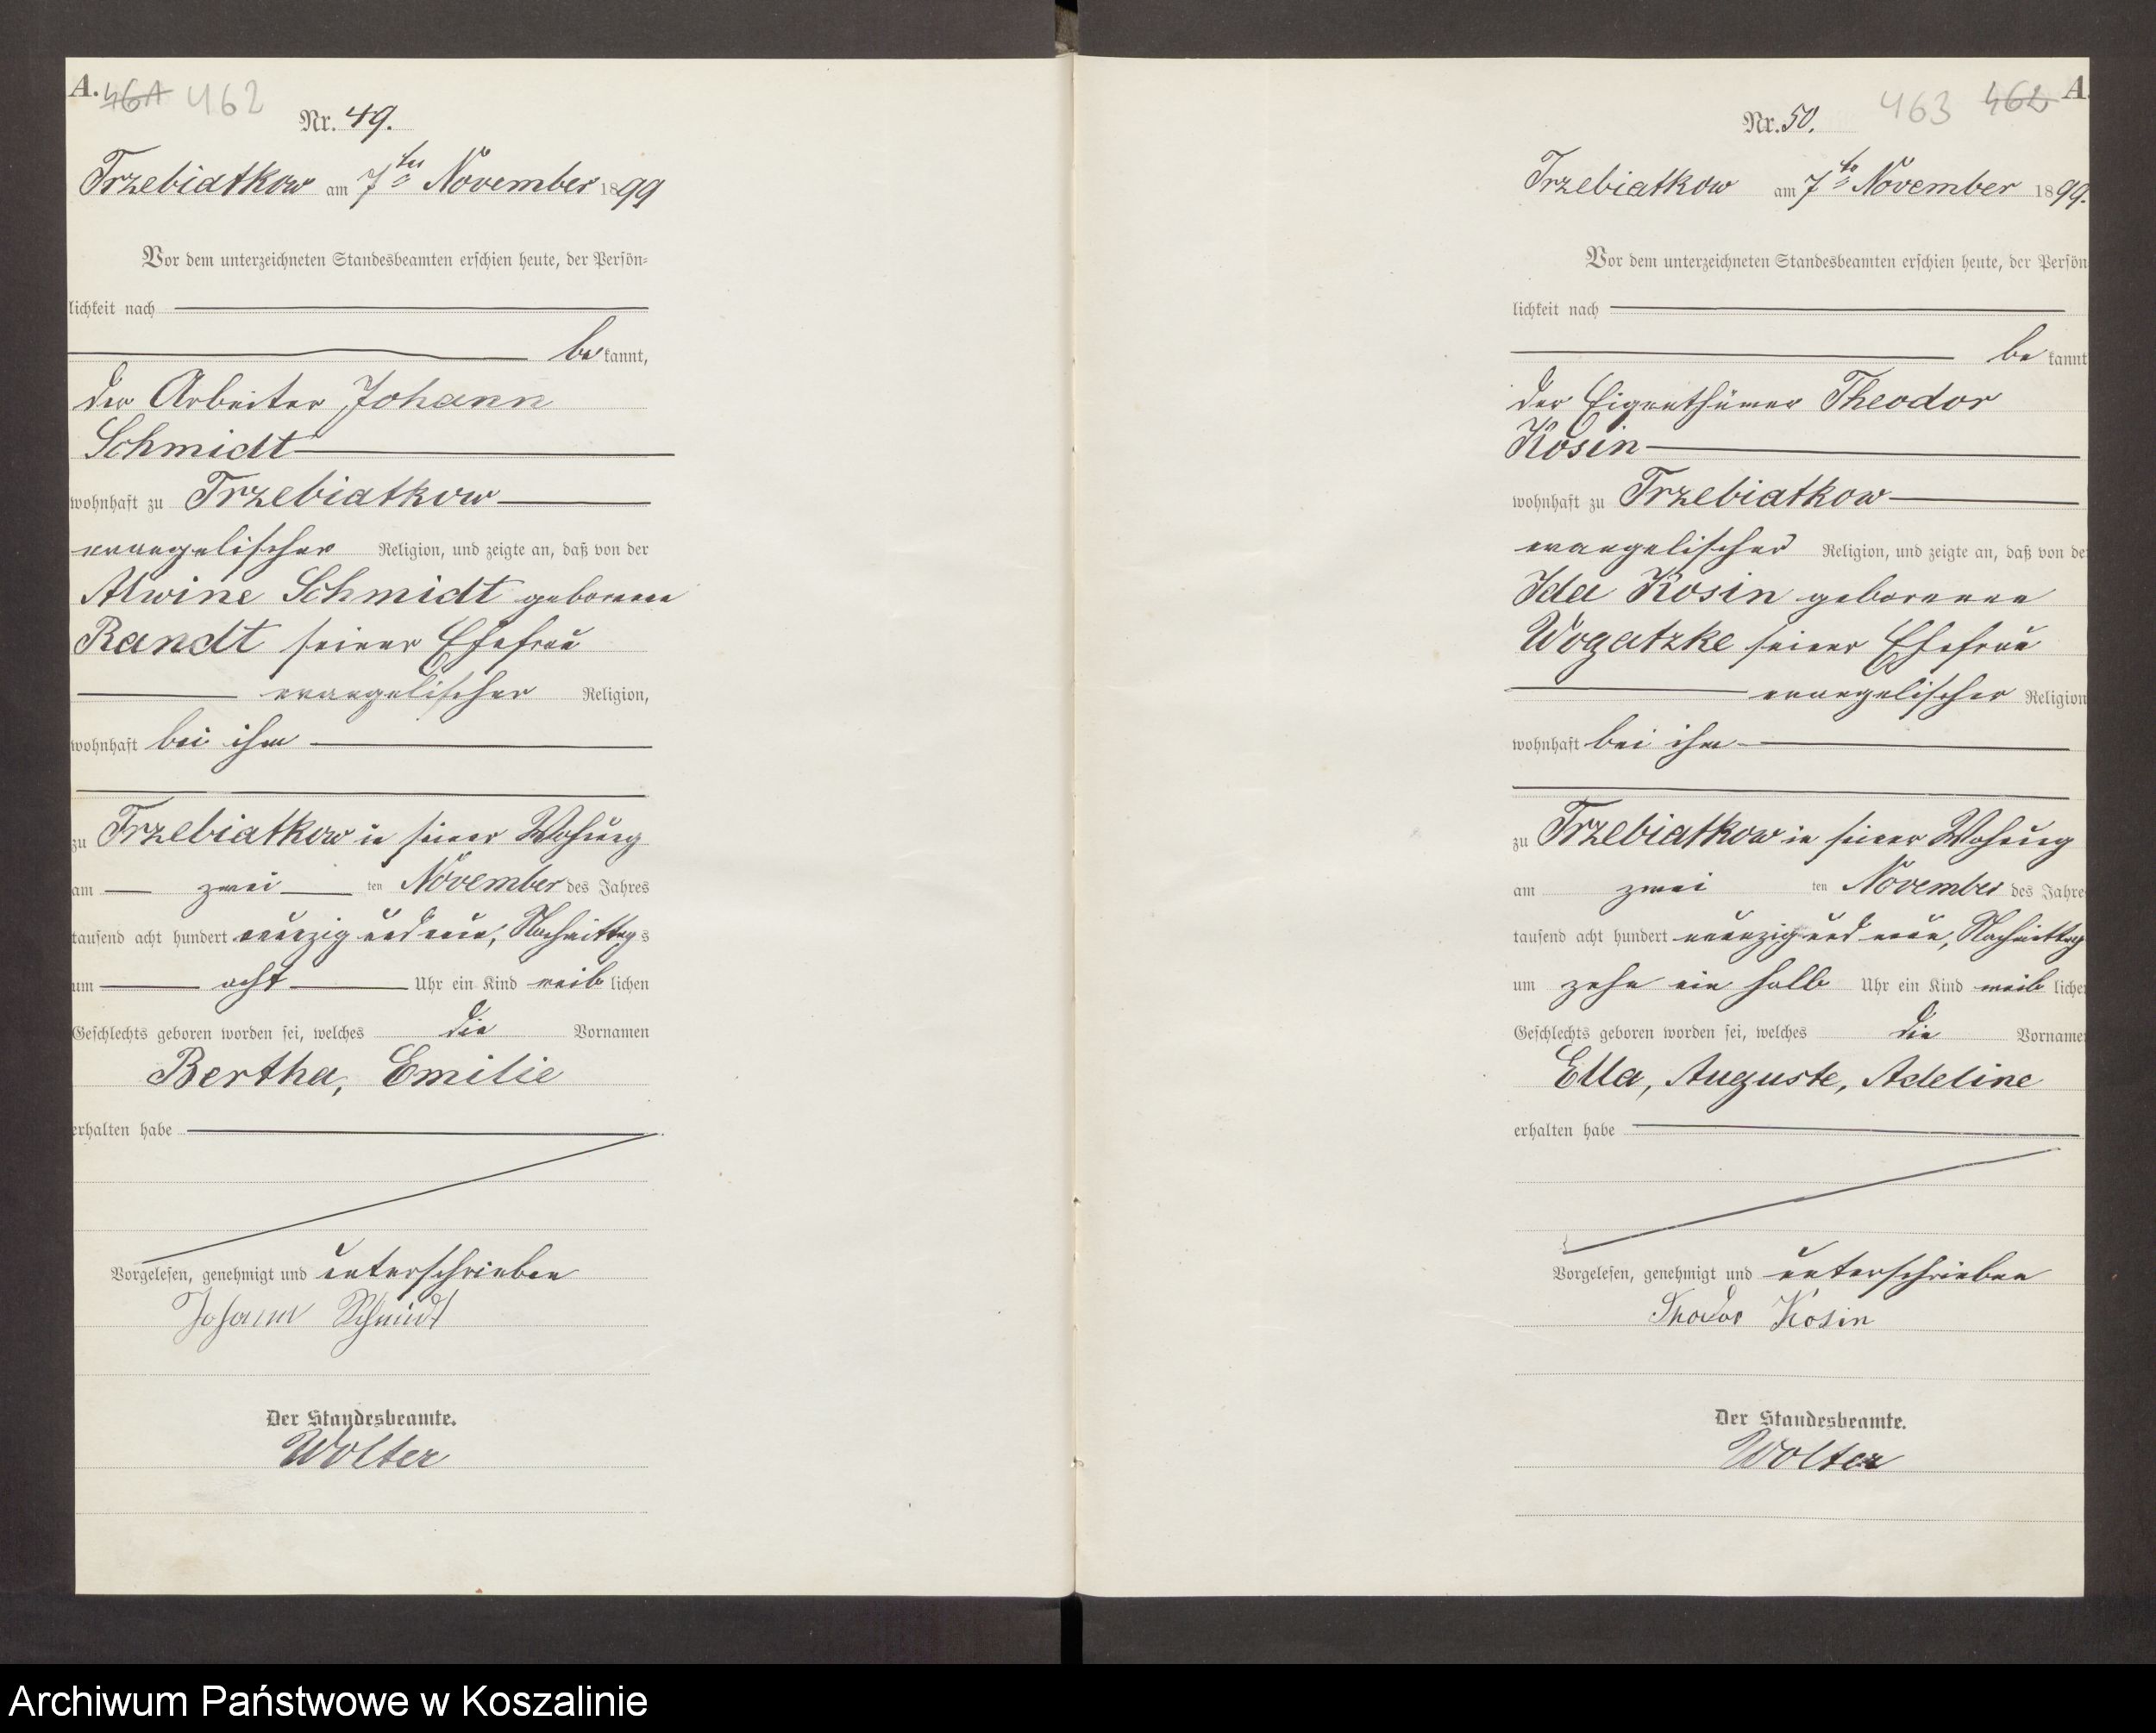 A. 461 462
Nr. 49.
Trzebiatkow am 7ten November 1899
Vor dem unterzeichneten Standesbeamten erschien heute, der Persön-
lichkeit nach
bekannt,
der Arbeiter Johann
Schmidt
wohnhaft zu Trzebiatkow
evangelischer Religion, und zeigte an, daß von der
Alwine Schmidt geborenen
Randt seiner Ehefrau
evangelischer Religion,
wohnhaft bei ihm
zu Trzebiatkow in seiner Wohnung
am zwei ten November des Jahres
tausend acht hundert neunzig und neun, Nachmittags
um acht Uhr ein Kind weiblichen
Geschlechts geboren worden sei, welches die Vornamen
Bertha, Emilie
erhalten habe
Vorgelesen, genehmigt und unterschrieben
Johann Schmidt
Der Standesbeamte.
Wolter
463 462 A
Nr. 50.
Trzebiatkow am 7ten November 1899.
Vor dem unterzeichneten Standesbeamten erschien heute, der Persön
lichkeit nach
bekannt
der Eigenthümer Theodor
Kosin
wohnhaft zu Trzebiatkow
evangelischer Religion, und zeigte an, daß von de
Ida Kosin geborenen
Wogatzke seiner Ehefrau
evangelischer Religion
wohnhaft bei ihm
zu Trzebiatkow in seiner Wohnung
am zwei ten November des Jahre
tausend acht hundert neunzig und neun, Nachmittag
um zehn ein halb Uhr ein Kind weibliche
Geschlechts geboren worden sei, welches die Vorname
Ella, Auguste, Adeline
erhalten habe
Vorgelesen, genehmigt und unterschrieben
Theodor Kosin
Der Standesbeamte.
Wolter
Archiwum Państwowe w Koszalinie